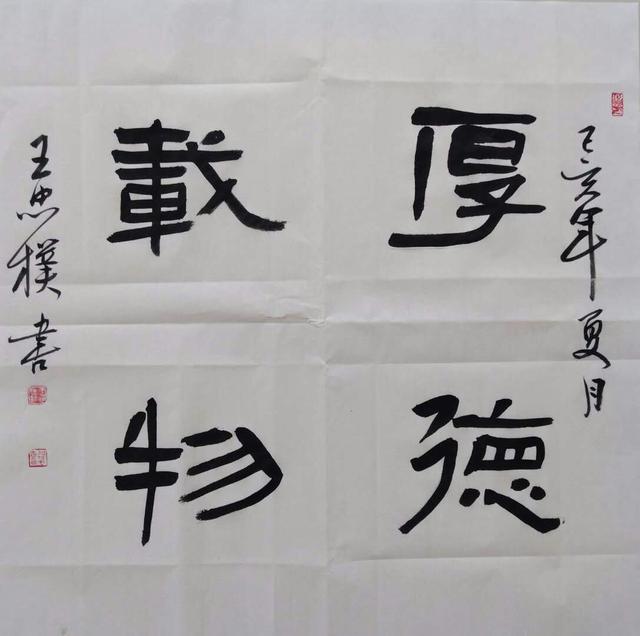 己亥年夏月
厚德
載物
王忠樸書